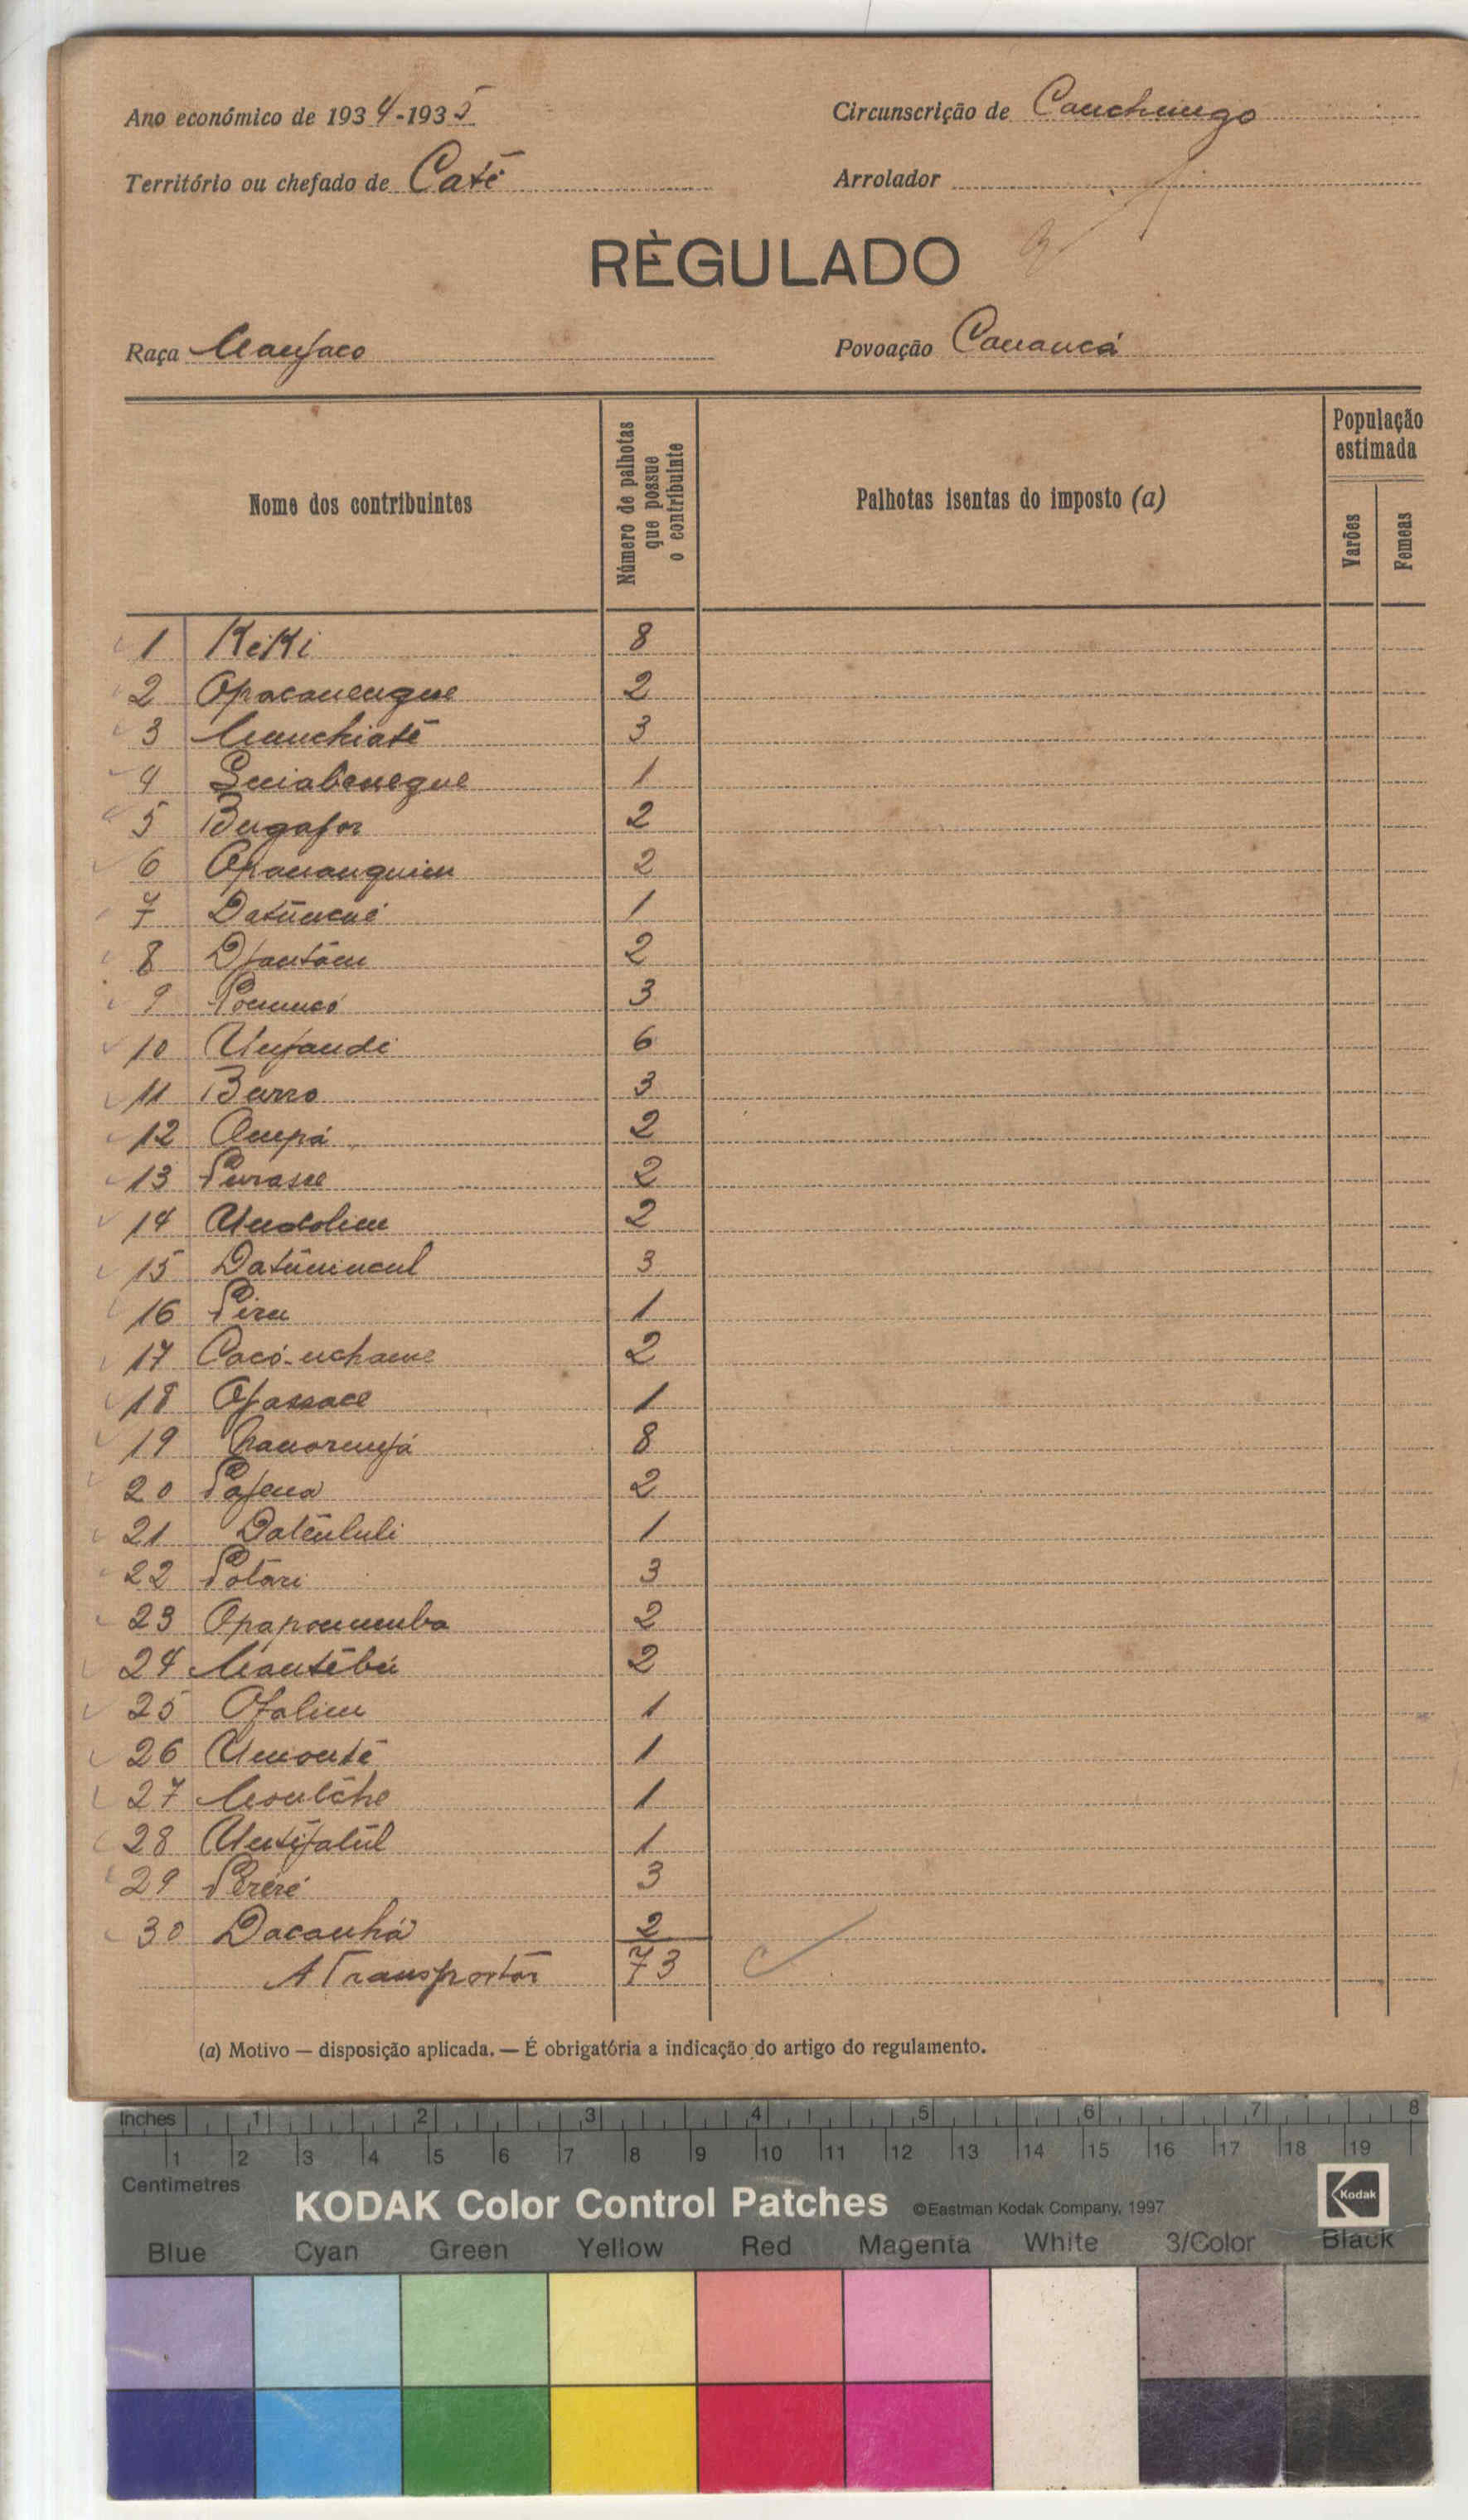 Ano económico de 1934-1935 Circunscrição de Canchungo
Território ou chefado de Caté Arrolador
RÈGULADO
Raça Manjaco Povoação Cananca
Nome dos contribuintes
Número de palhotas que possue o contribuinte
Palhotas isentas do imposto (a)
População estimada
Varões
Femeas
1 KeKi 8
2 Opacanengue 2
3 Manchiaté 3
4 1
5 Bugafor 2
6 Opananquim 2
7 1
8 Djantam 2
9 3
10 Unjandi 6
11 Burro 3
12 Ampá 2
13 Purasse 2
14 Undolim 2
15 3
16 1
17 Cacó-nchame 2
18 Ojassace 1
19 8
20 Pajena 2
21 1
22 Potari 3
23 2
24 Mantêbú 2
25 Ofalim 1
26 Umonté 1
27 1
28 1
29 Pèréré 3
30 Dacanhá 2
A Transportar 73
(a) Motivo — disposição aplicada. — É obrigatória a indicação do artigo do regulamento.
Inches 1 2 3 4 5 6 7 8
1 2 3 4 5 6 7 8 9 10 11 12 13 14 15 16 17 18 19
Centimetres
KODAK Color Control Patches ©Eastman Kodak Company, 1997 Kodak
Blue Cyan Green Yellow Red Magenta White 3/Color Black